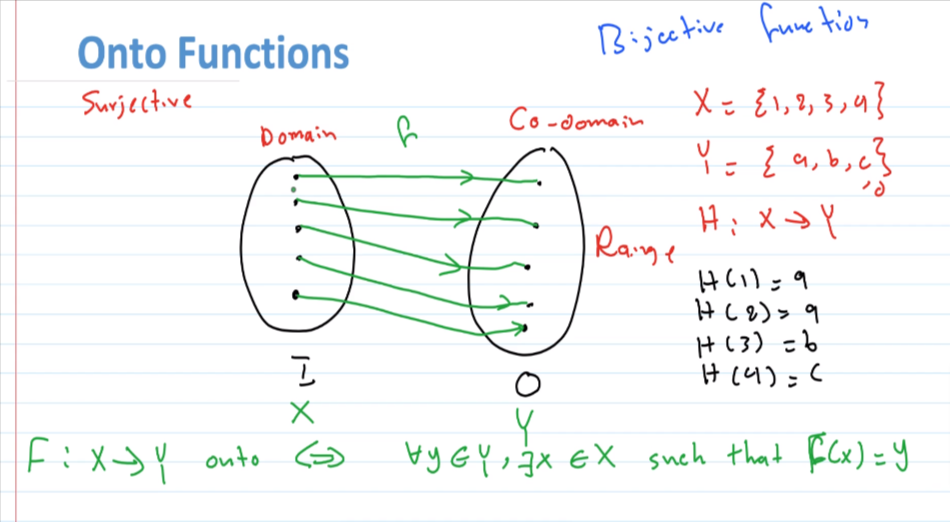 Bijective function
Onto Functions
Surjective
Domain
f
Co-domain
X = {1, 2, 3, 4}
Y = { a, b, c}
,d
H : X → Y
Range
H(1) = a
H(2) = a
H(3) = b
H(4) = c
I
O
X
Y
F : X → Y onto ⇔ ∀y ∈ Y, ∃x ∈ X such that F(x) = y